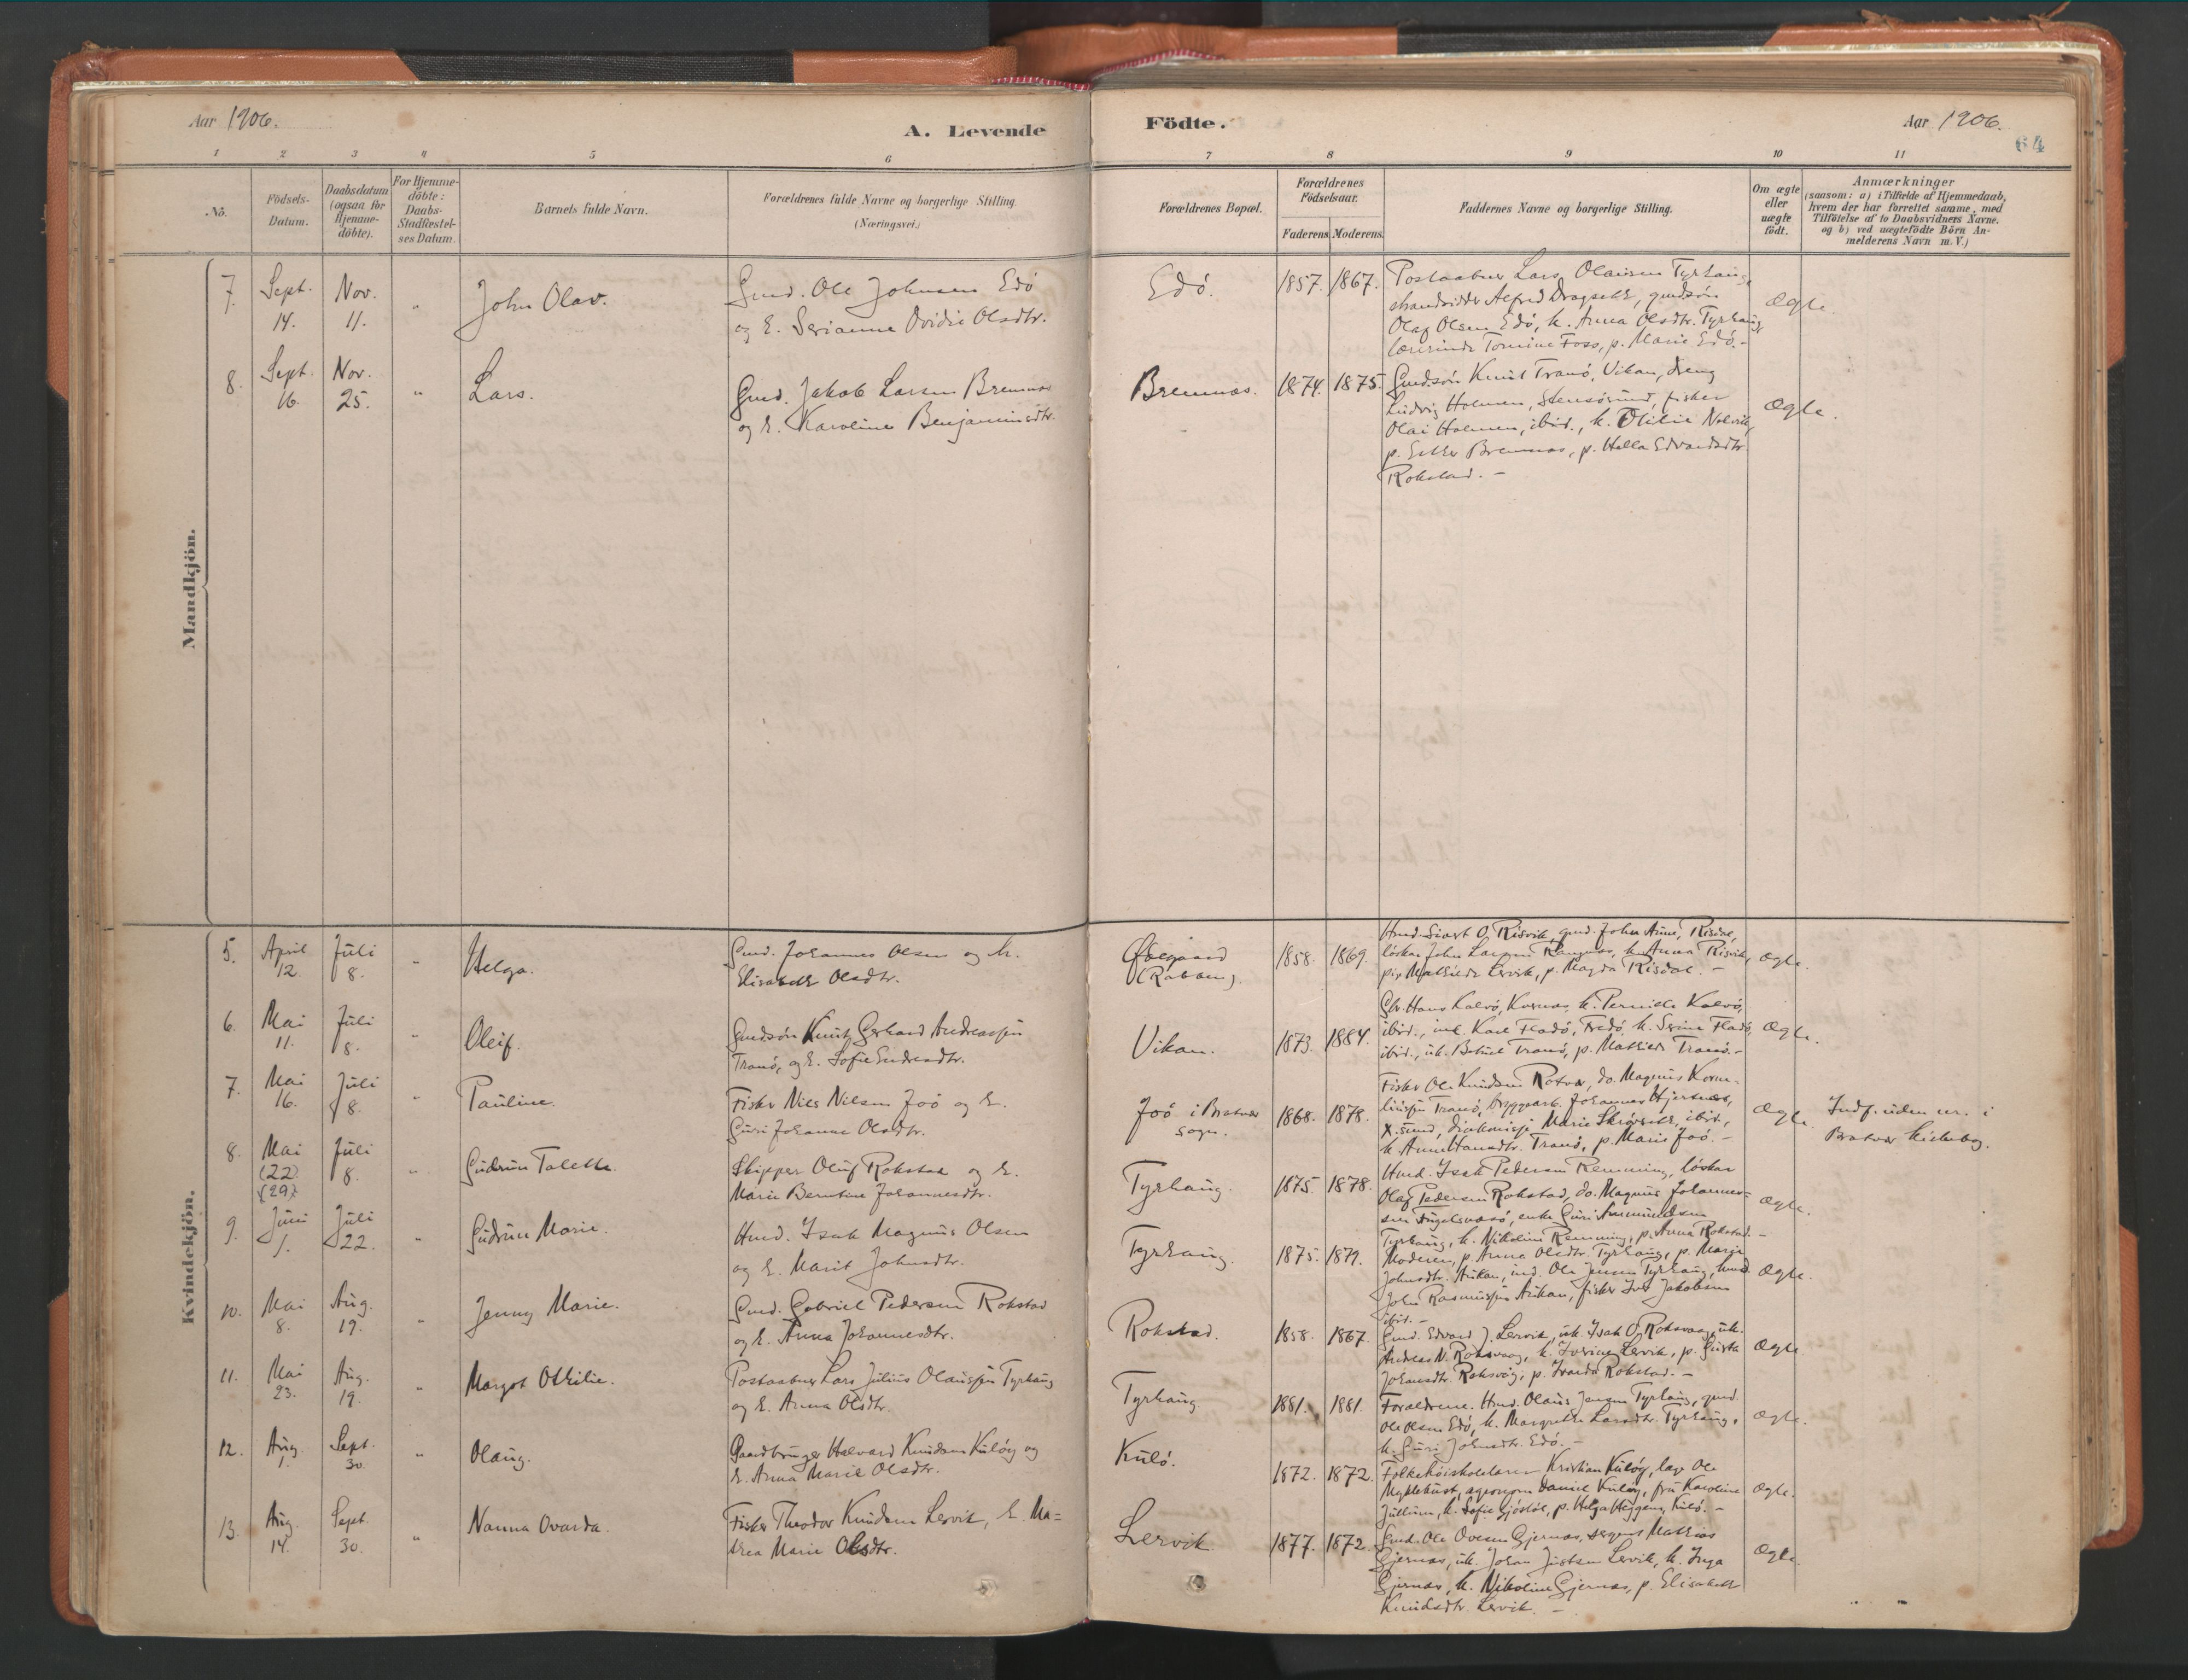 Aar 1906.
A. Levende
Födte.
Aar 1906.
64
1 2 3 4 5 6 7 8 9 10 11
No.
Födsels-
Datum.
Daabsdatum
(ogsaa for
Hjemme-
döbte).
For Hjemme-
döbte:
Daabs-
Stadfæstel-
ses Datum.
Barnets fulde Navn.
Forældrenes fulde Navne og borgerlige Stilling
(Næringsvei.)
Forældrenes Bopæl.
Forældrenes
Födselsaar.
Faderens. Moderens.
Faddernes Navne og borgerlige Stilling.
Om ægte
eller
uægte
födt.
Anmærkninger
(saasom: a) i Tilfælde af Hjemmedaab,
hvem der har forrettet samme, med
Tilföielse af to Daabsvidners Navne.
og b) ved uægtefödte Börn An-
melderens Navn m. V.)
Mandkjön.
7. Sept. 14. Nov. 11. " John Olav.
Gmd. Ole Johnsen Edö
og E. Serianna Ovidie Olsdtr.
Edö. 1857. 1867.
Postaabner Lars Olausen Tyrhaug,
strandsidder Alfred Dragseth, gmdsön
Olaf Olsen Edö, k. Anna Olsdtr. Tyrhaug,
lærerinde Tomine Foss, p. Marie Edö. -
Ægte.
8. Sept. 16. Nov. 25. " Lars.
Gmd. Jakob Larsen Bremnes
og E. Karoline Benjaminsdtr.
Bremnes. 1874. 1875.
Gmdsön Knut Tranö, Vikan, dreng
Ludvig Holmen, fisker
Olai Holmen, ibid., k. Otilie
p. Ester Bremnes, p. Halla Edvardsdtr.
Rokstad. -
Ægte.
Kvindekjön.
5. April 12. Juli 8. " Helga.
Gmd. Johannes Olsen og k.
Elisabeth Olsdtr.
Öbegaard
(Rabben).
1858. 1869.
Hmd. Sivert O. Risvik, gmd. John Aune, Risdal,
löskar John Larsen k. Anna Risvik,
pip. Mathilde Lervik, p. Magda Risdal. -
Ægte.
6. Mai 11. Juli 8. " Oleif.
Gmdsön Knut Gerhard Andreassen
Tranö, og E. Sofie Endresdtr.
Vikan. 1873. 1884.
Gbr. Hans Kalvö, Kornes, k. Pernille Kalvö,
ibid., Karl Fladö, Fredö, k. Serine Fladö,
ibid., uk. Tranö, p. Mathilde Tranö. -
Ægte.
7. Mai 16. Juli 8. " Pauline.
Fisker Nils Nilsen Joö og E.
Guri Johanna Olsdtr.
Joö i Bratvær
sogn.
1868. 1878.
Fisker Ole Knudsen Rotvær, do. Magnus Korne-
liussen Tranö, bryggearb. Johannes Hjertnes,
X.sund, Marie ibid.,
k. Anne Hansdtr. Tranö, p. Marie Joö. -
Ægte.
Indf. uden nr. i
Bratvær kirkebog.
8. Mai (22.) (29). Juli 8. " Gudrun Talette.
Skipper Oluf Rokstad og E.
Marie Berntine Johannesdtr.
Tyrhaug. 1875. 1878.
Hmd. Isak Pedersen Remming, löskar
Olaf Pedersen Rokstad, do. Magnus Johannes-
sen enke Guri Amundsen
Tyrhaug, k. Nikoline Remming, p. Anna Rokstad. -
Ægte.
9. Juni 1. Juli 22. " Gudrun Marie.
Hmd. Isak Magnus Olsen
og E. Marit Johnsdtr.
Tyrhaug. 1875. 1879.
Moderen, p. Anna Olsdtr. Tyrhaug, p. Marie
Johnsdtr. Aukan, ind. Ole Jensen Tyrhaug, hmd.
John Rasmussen Aukan, fisker Iver Jakobsen
ibid. -
Ægte.
10. Mai 8. Aug. 19. " Jenny Marie.
Gmd. Gabriel Pedersen Rokstad
og E. Anna Johannesdtr.
Rokstad. 1858. 1867.
Gmd. Edvard J. Lervik, uk. Isak O. Roksvaag, uk.
Andreas N. Roksvaag, k. Iverine Lervik, p. Gurta
Johansdtr. Roksvåg, p. Rokstad. -
Ægte.
11. Mai 23. Aug. 19. " Margot Othilie.
Postaabner Lars Julius Olaussen Tyrhaug
og E. Anna Olsdtr.
Tyrhaug 1881. 1881.
Forældrene. Hmd. Olaus Jensen Tyrhaug, gmd.
Ole Olsen Edö, k. Margrethe Larsdtr. Tyrhaug,
k. Guri Johnsdtr. Edö. -
Ægte.
12. Aug. 1. Sept. 30. " Olaug.
Gaardbruger Halvard Knudsen Kulöy og
E. Anna Marie Olsdtr.
Kulö. 1872. 1872.
Folkehöiskolelærer Kristian Kulöy, læge Ole
Myklebust, agronom Daniel Kulöy, fru Karoline
Jullum, k. Sofie Gjöstöl, p. Helga Heggem, Kulö. -
Ægte.
13. Aug. 14. Sept. 30. " Nanna Ovarda.
Fisker Theodor Knudsen Lervik, E. Ma-
trea Marie Olsdtr.
Lervik. 1877. 1872.
Gmd. Ole Ovesen Gjernes, sergent Mathias
Gjernes, uk. Johan Justsen Lervik, k. Inga
Gjernes, k. Nikoline Gjernes, p. Elisabeth
Knudsdtr. Lervik. -
Ægte.